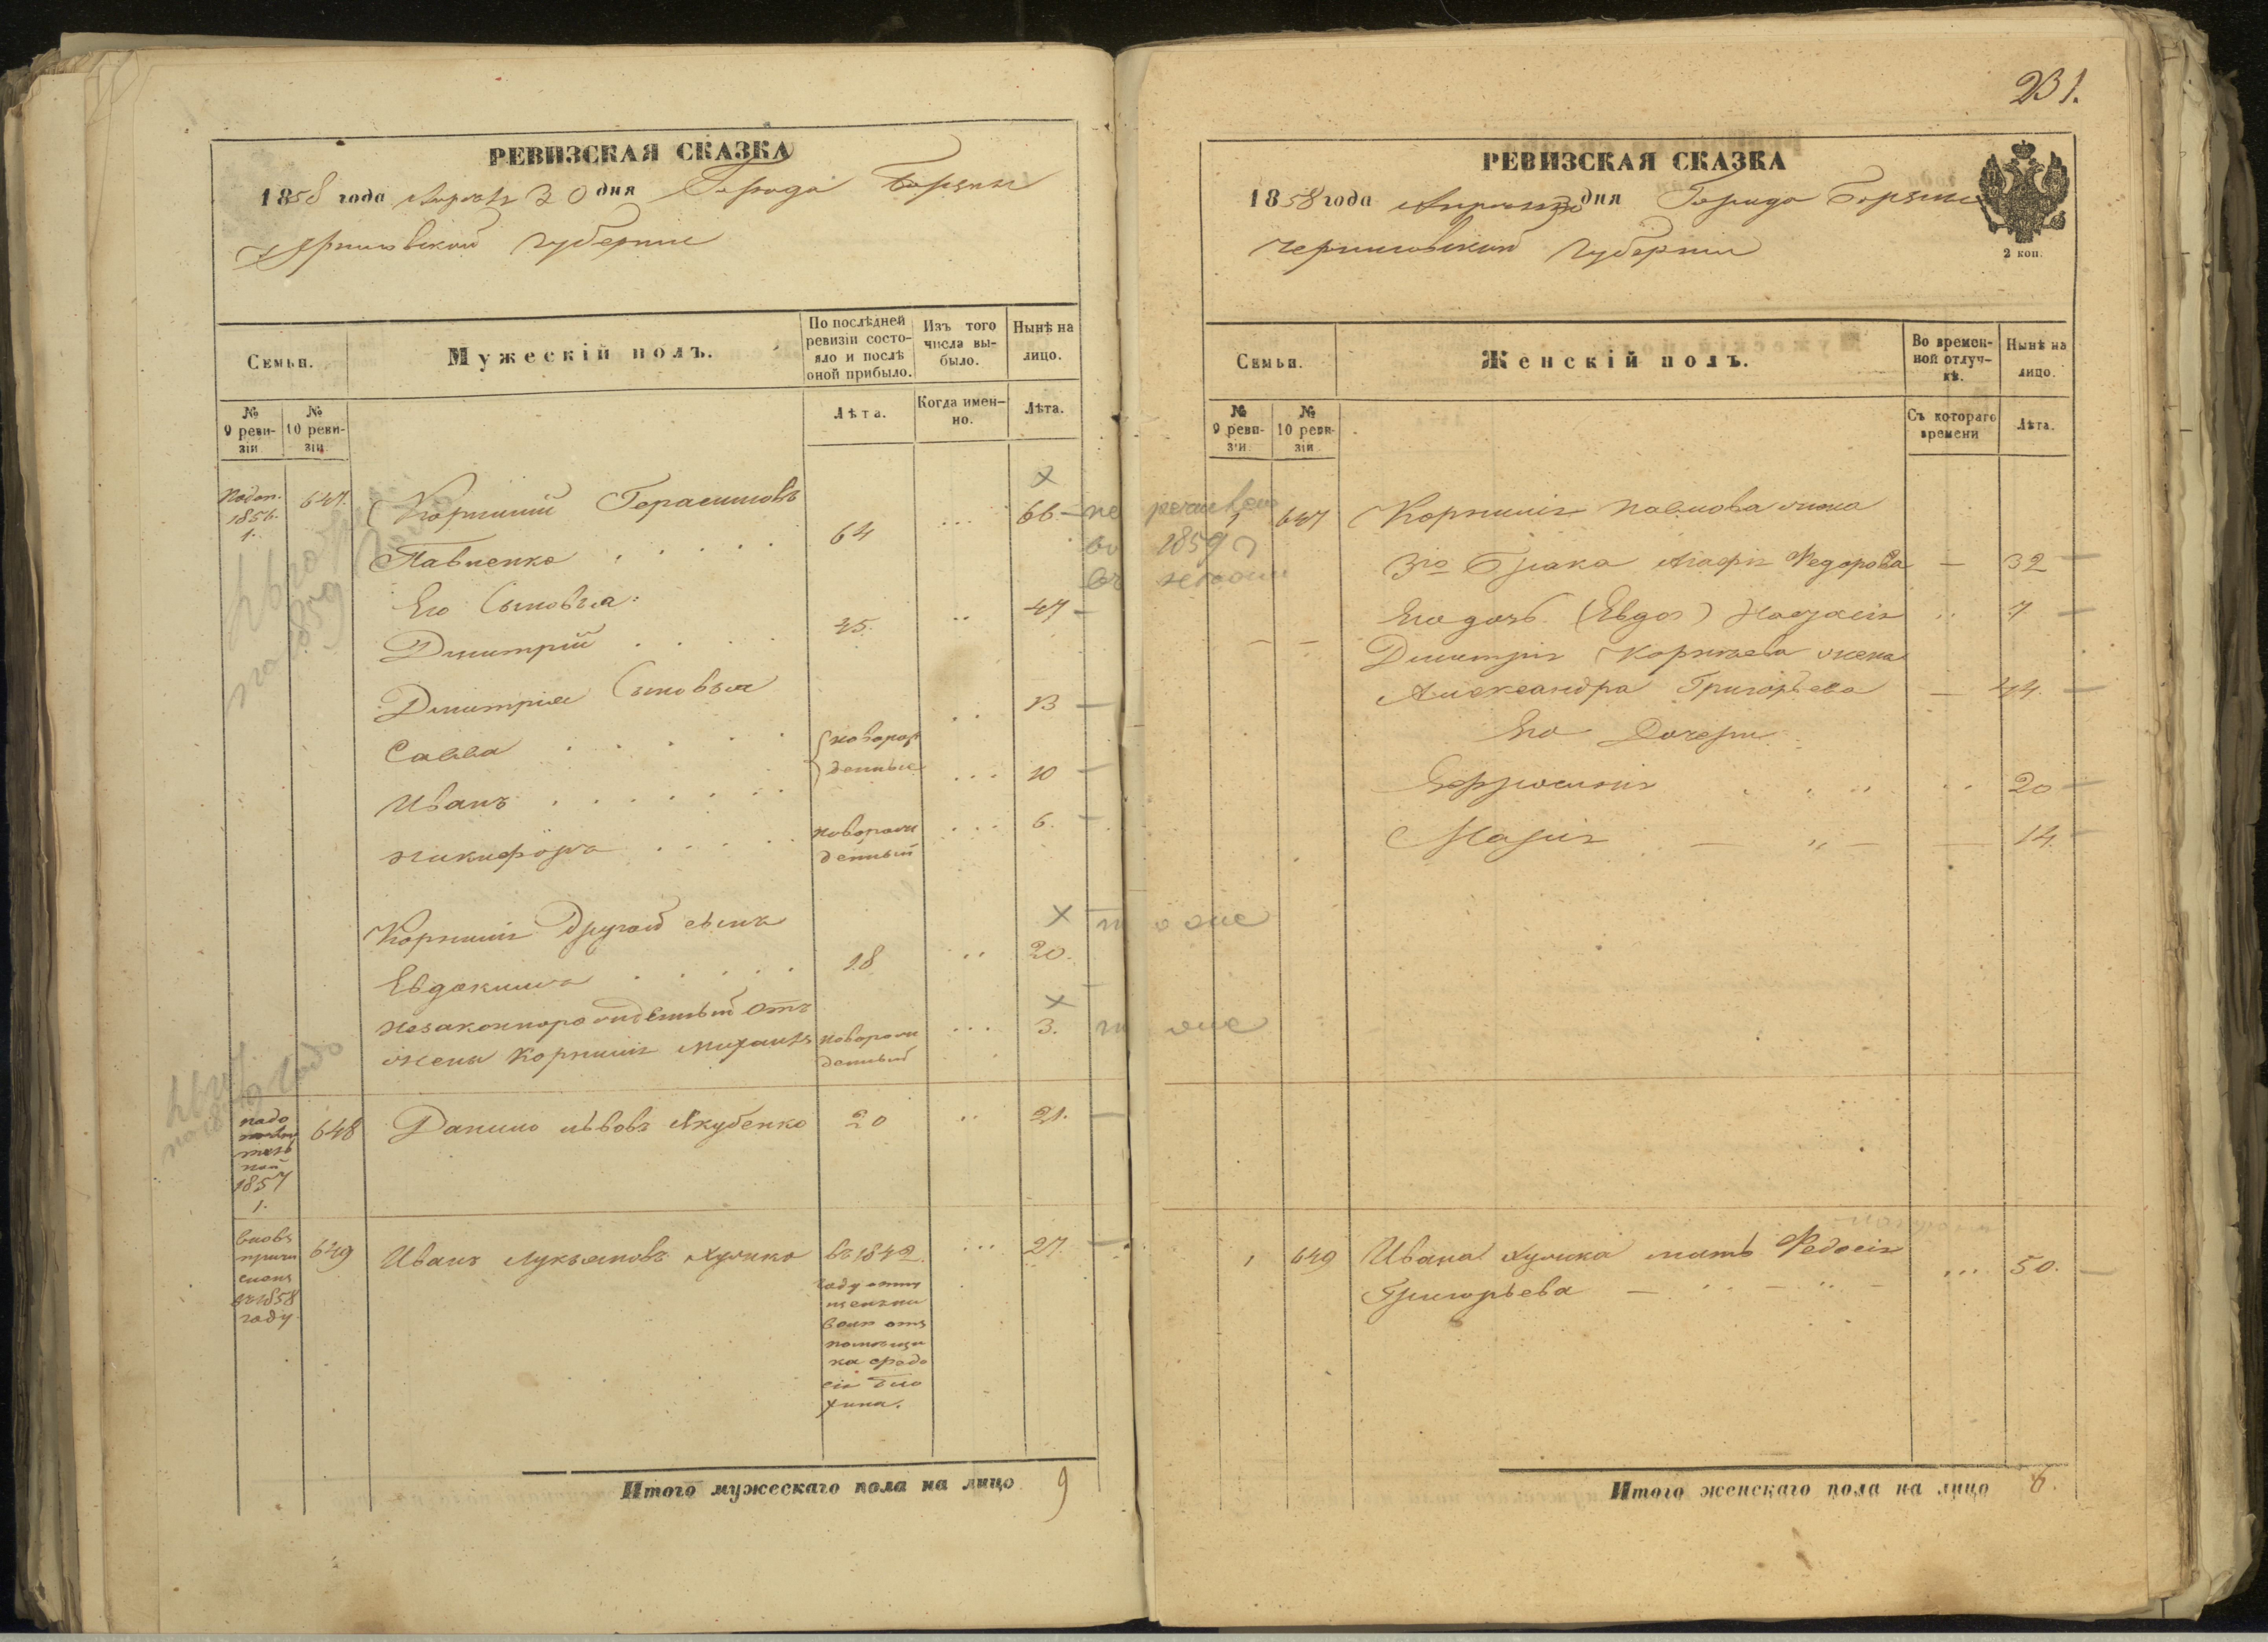 РЕВИЗСКАЯ СКАЗКА
1858 года Апреля 30 дня Города Борзны
Черниговской губернии
Семьи.
Мужескій полъ.
По послѣдней ревизіи состояло и послѣ оной прибыло.
Изъ того числа выбыло.
Нынѣ на лицо.
№ 9 ревизіи
№ 10 ревизіи
Лѣта.
Когда именно.
Лѣта.
Подоп. 1856. 1.
647.
Корнилій Герасимовъ
Павленко
64
66
Его Сыновья:
Дмитрій
45.
47
Дмитрія Сыновья
Савва
новорож
денные
13
Иванъ
10
Никифоръ
новорож
денный
6.
Корнилія Другой сынъ
Евдокимъ
18
20.
Незаконнорожденный отъ
жены Корнилія Михаилъ
новорож
денный
3.
1857
1.
648
Данило Львовъ Якубенко
20
21.
вновь
причи
сленъ
въ 1858
году
649
Иванъ Лукьяновъ
въ 1842
году
27.
Итого мужескаго пола на лицо
9
231.
РЕВИЗСКАЯ СКАЗКА
1858 года Апреля 30 дня Города Борзны
Черниговской Губерніи
2 коп.
Семьи.
Женскій полъ.
Во временной отлучкѣ.
Нынѣ на лицо.
№ 9 ревизіи
№ 10 ревизіи
Съ котораго времени
Лѣта.
1859
1
647
Корнилія Павлова жена
3го Брака Агафія Федорова
32
Его дочь
7
Дмитрія Корнѣева жена
Александра Григорьева
44.
Его Дочери
Ефросинія
20
Марія
14.
то же
1
649
Ивана мать Федосія
Григорьева
50.
Итого женскаго пола на лицо
6.